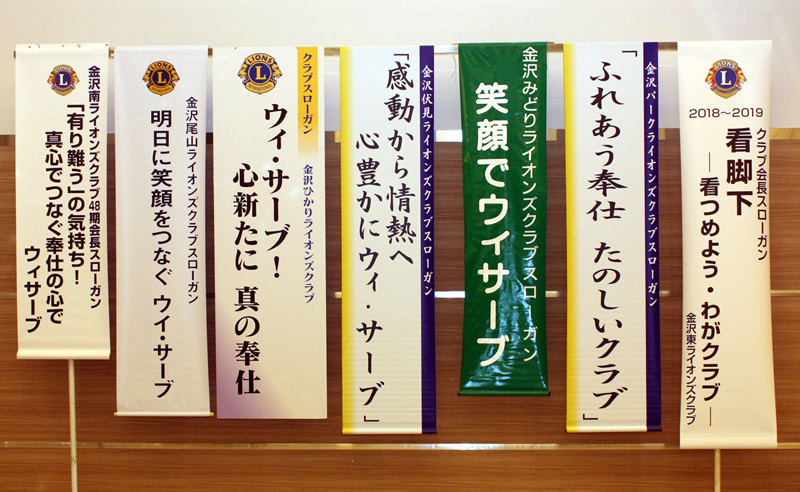 LIONS
L
INTERNATIONAL
金沢南ライオンズクラブ48期会長スローガン
「有り難う」の気持ち!
真心でつなぐ奉仕の心で
ウィサーブ
LIONS
L
INTERNATIONAL
金沢尾山ライオンズクラブスローガン
明日に笑顔をつなぐ ウイ・サーブ
LIONS
L
INTERNATIONAL
クラブスローガン
金沢ひかりライオンズクラブ
ウィ・サーブ!
心新たに 真の奉仕
金沢伏見ライオンズクラブスローガン
「感動から情熱へ
心豊かにウィ・サーブ」
金沢みどりライオンズクラブスローガン
笑顔でウィサーブ
金沢パークライオンズクラブスローガン
「ふれあう奉仕 たのしいクラブ」
LIONS
L
INTERNATIONAL
2018〜2019
クラブ会長スローガン
看脚下
―看つめよう・わがクラブ―
金沢東ライオンズクラブ